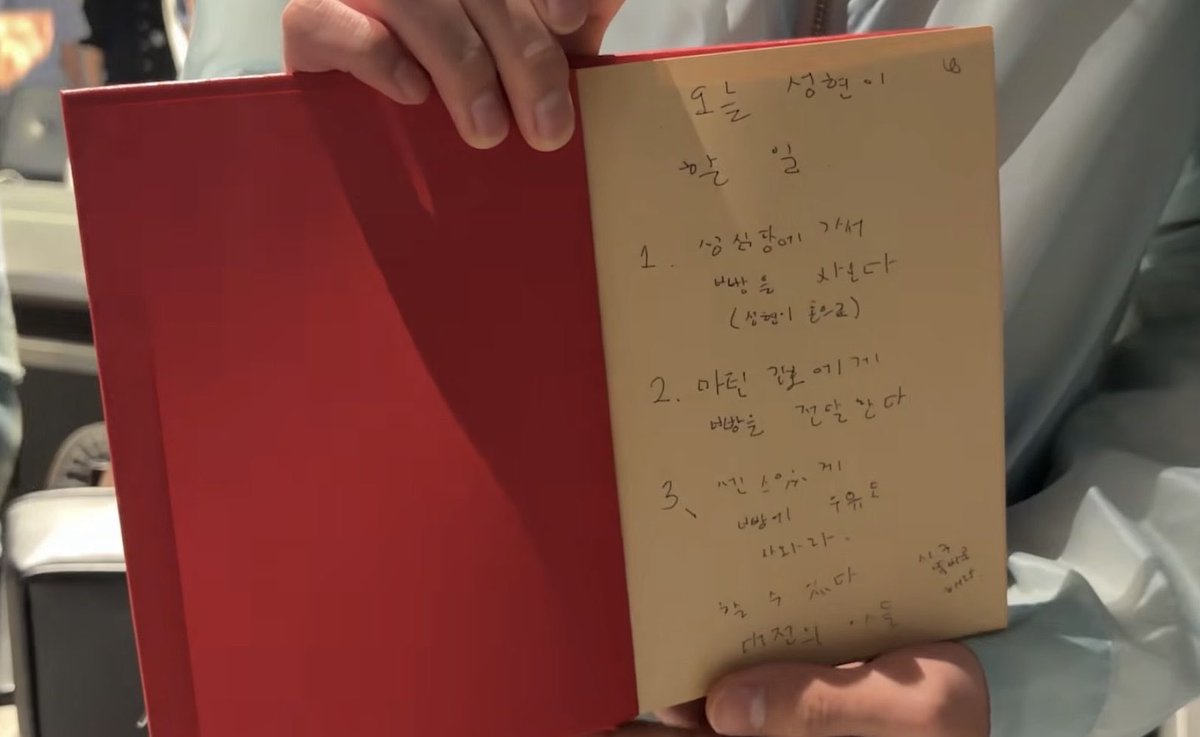 오늘 성현이
할 일
1. 성심당에 가서
빵을 사온다
(성현이 돈으로)
2. 마틴
빵을 전달한다
3. 센스있게
빵에 우유도
사와라.
할 수 있다
대전의 아들
똑바로
해라